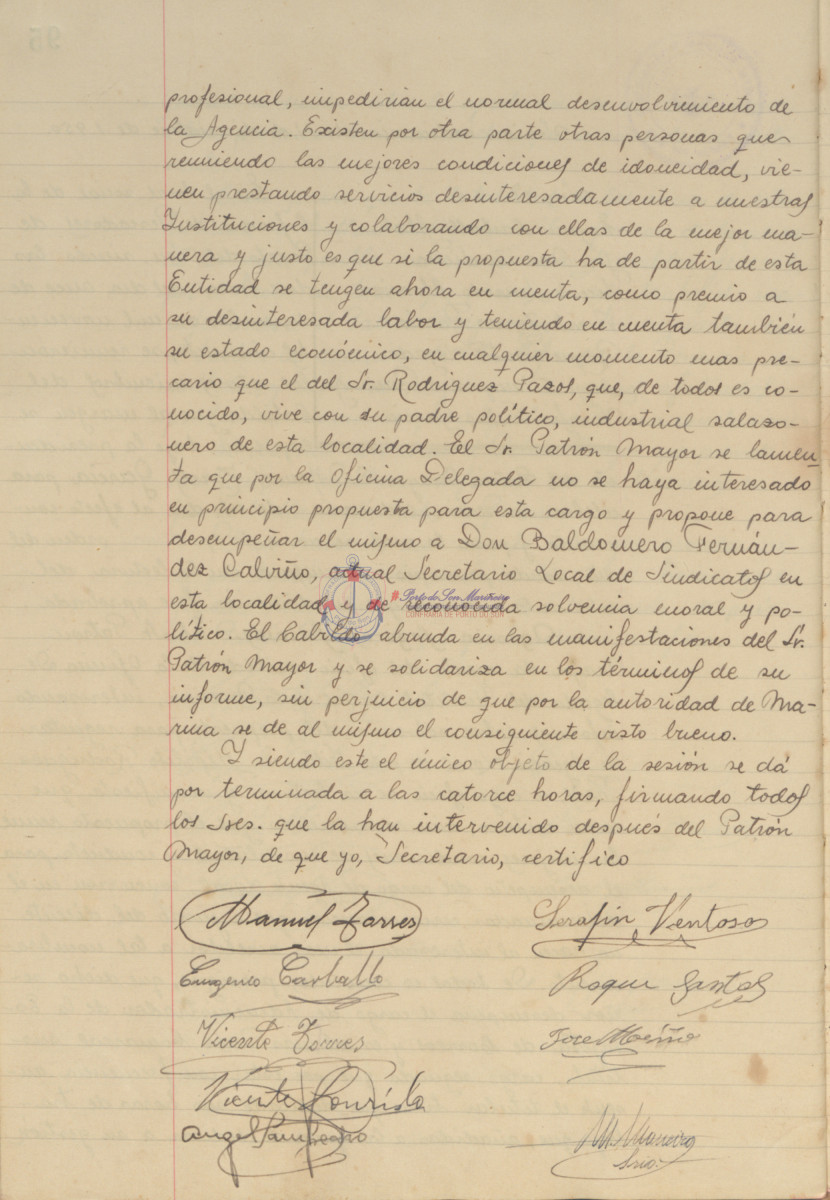 profesional, impedirian el normal desenvolvimiento de
la Agencia. Existen por otra parte otras personas que
reuniendo las mejores condiciones de idoneidad, vie-
nen prestando servicios desinteresadamente a nuestras
Instituciones y colaborando con ellas de la mejor ma-
nera y justo es que si la propuesta ha de partir de esta
Entidad se tengen ahora en cuenta, como premio a
su desinteresada labor y teniendo en cuenta también
su estado económico, en cualquier momento mas pre-
cario que el del Sr. Rodriguez Pazos, que, de todos es co-
nocido, vive con su padre político, industrial salazo-
nero de esta localidad. El Sr. Patrón Mayor se lamen-
ta que por la Oficina Delegada no se haya interesado
en principio propuesta para esta cargo y propone para
desempeñar el mismo a Don Baldomero Fernán-
dez Calviño, actual Secretario Local de Sindicatos en
esta localidad y de reconocida solvencia moral y po-
lítico. El Cabildo abunda en las manifestaciones del Sr.
Patrón Mayor y se solidariza en los términos de su
informe, sin perjuicio de que por la autoridad de Ma-
rina se de al mismo el consiguiente visto bueno.
Y siendo este el único objeto de la sesión se dá
por terminada a las catorce horas, firmando todos
los Sres. que la han intervenido después del Patrón
Mayor, de que yo, Secretario, certifico
Manuel Torres Serafin Ventoso
Eugenio Carballo Roque Santos
Vicente Torres Jose Mariño
Vicente Lourido
Angel Sampedro M. Maneiro
Srio.
Porto do Son Mariñeiro
CONFRARÍA DE PORTO DO SON
95